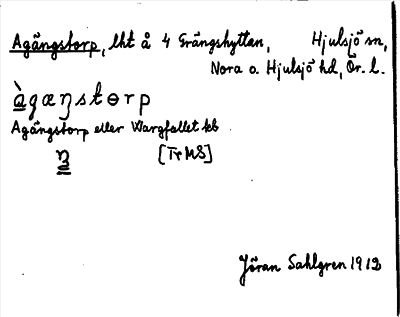 Agängstorp, lht å 4 Grängshyttan, Hjulsjö sn,
Nora o. Hjulsjö hd, Ör. l.
àgæŋstɵrp
Agängstorp eller Wargfallet
ŋ [TrMS]
Jöran Sahlgren 1912